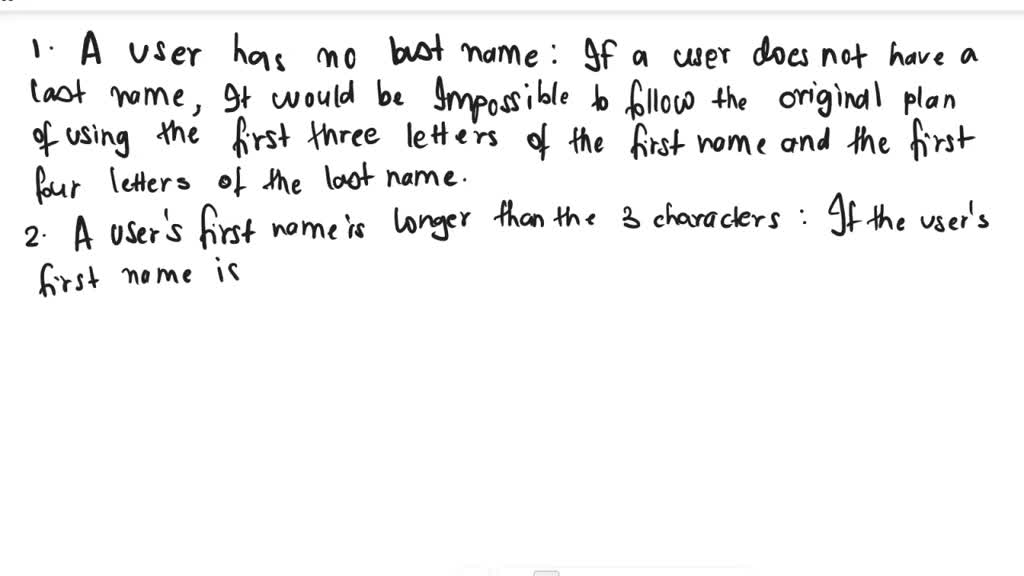 1. A user has no last name: If a user does not have a
last name, It would be Impossible to follow the original plan
of using the first three letters of the first name and the first
four letters of the last name.
2. A user's first name is longer than the 3 characters: If the user's
first name is